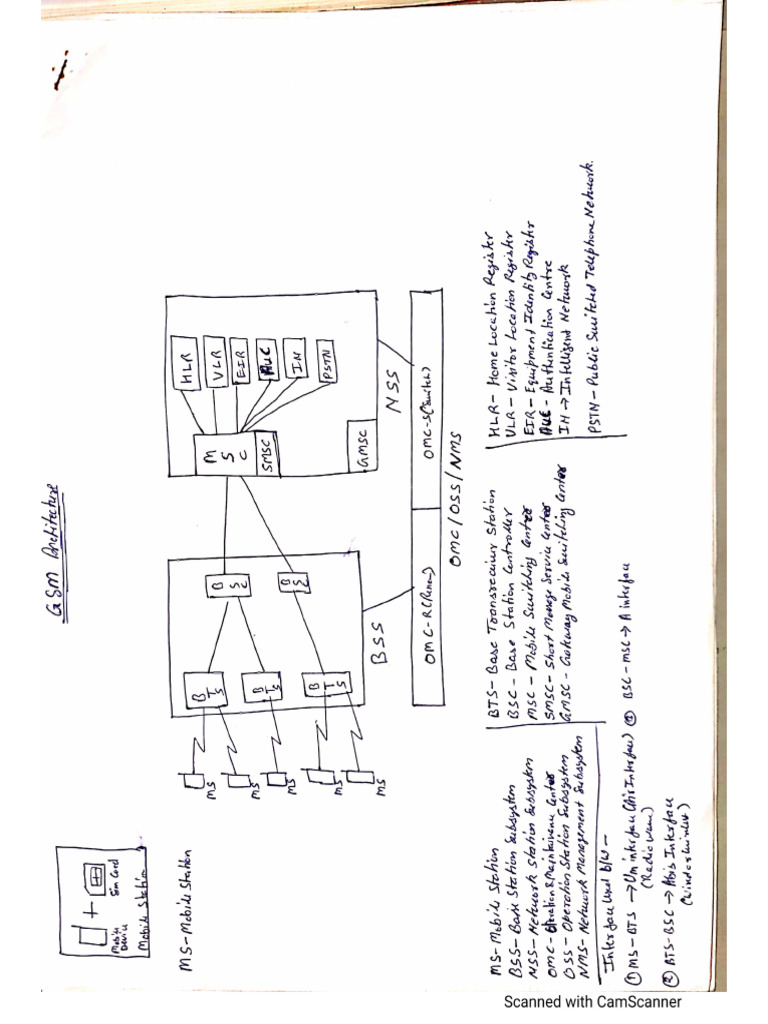 GSM Architecture
Mobile Device + Sim Card
Mobile Station
MS-Mobile Station
MS
MS
MS
MS
MS
BTS
BTS
BTS
BSC
BSC
BSS
MSC
SMSC
GMSC
HLR
VLR
EIR
AUC
IN
PSTN
NSS
OMC-R
OMC-S(Switch)
OMC/OSS/NMS
MS-Mobile Station
BSS-Base Station Subsystem
NSS-Network Station Subsystem
OMC-Operation & Maintainenc Center
OSS-Operation Station Subsystem
NMS-Network Management Subsystem
BTS-Base Transreciver Station
BSC-Base Station Controller
MSC-Mobile Switching Center
SMSC-Short Message Service Center
GMSC-Gateway Mobile Switching Center
HLR-Home Location Register
VLR-Visitor Location Register
EIR-Equipment Identity Register
AUC-Authentication Centre
IN→Intelligent Network
PSTN-Public Switched Telephone Network.
Interface Used b/w-
① MS-BTS → Um interface (Air Interface)
② BTS-BSC → Abis Interface
③ BSC-MSC → A interface
Scanned with CamScanner